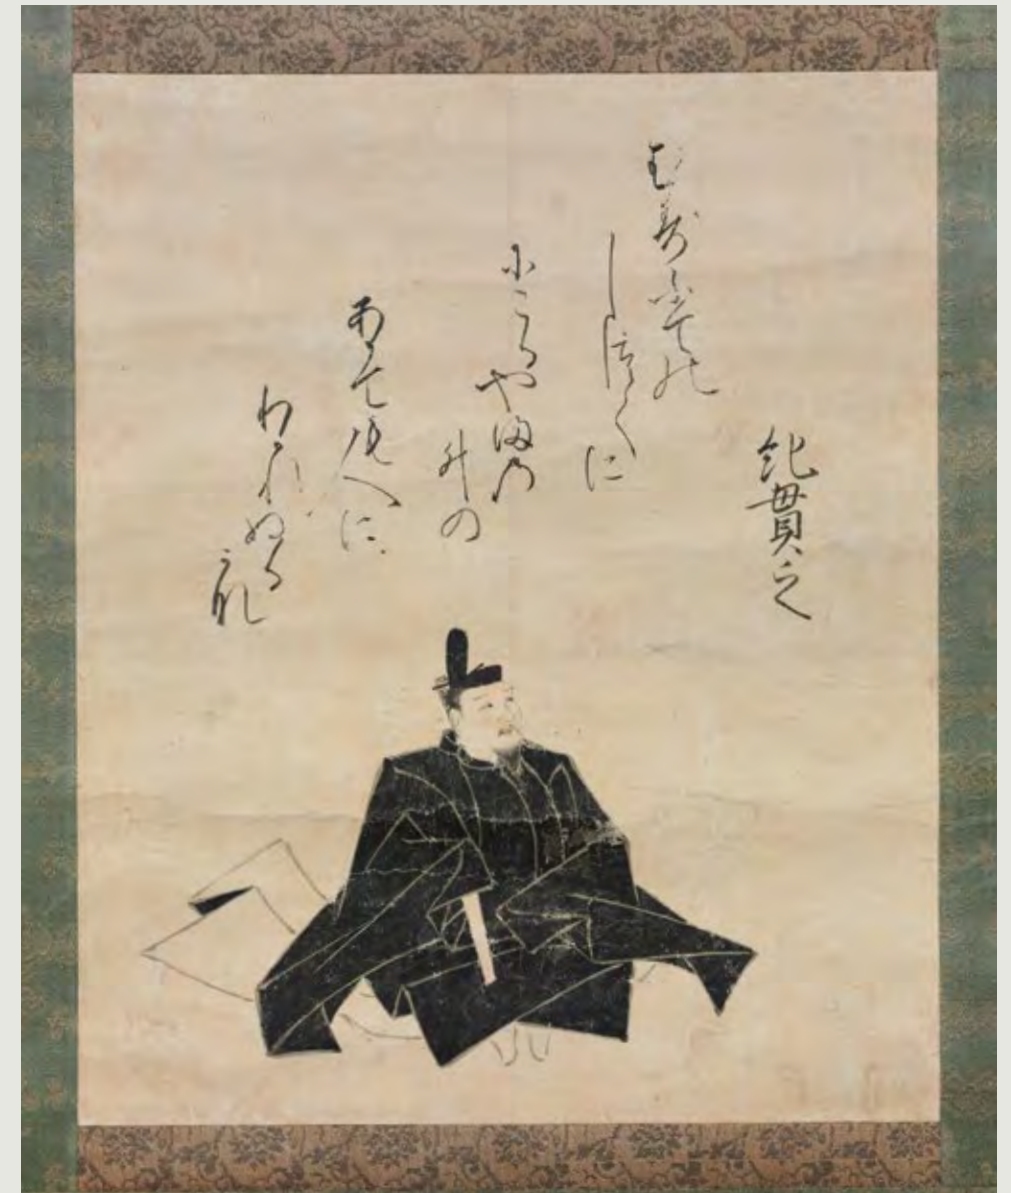 紀貫之
むすふての
しつくに
にこるやまの
井の
あかても人に
わかれぬる
哉